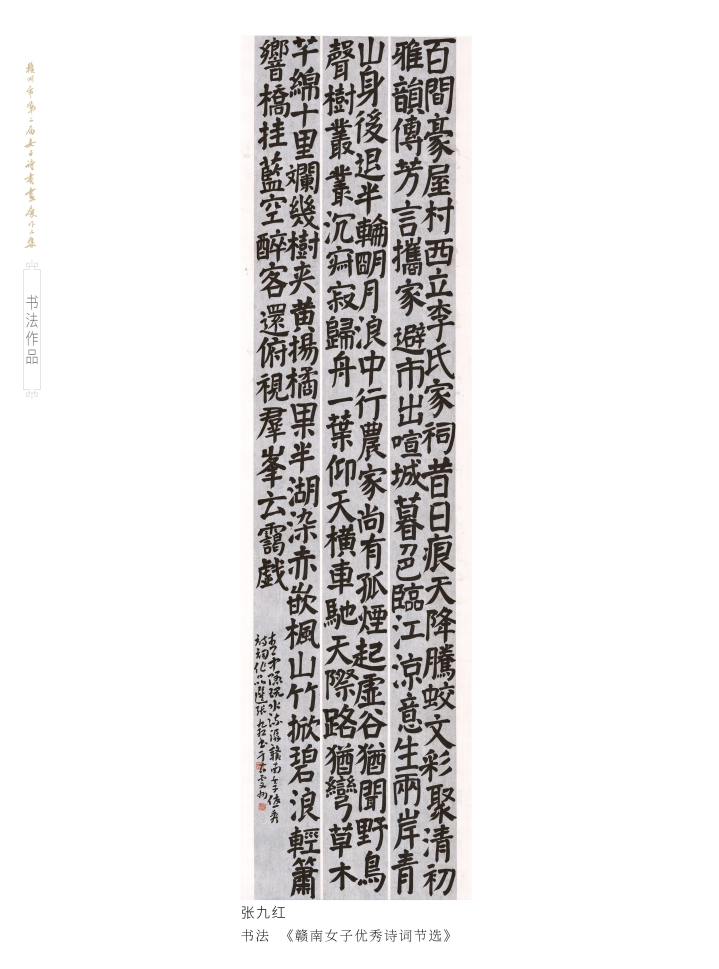 赣州市第二届女子诗书画展作品集
书法作品
百間豪屋村西立李氏家祠昔日痕天降騰蛟文彩聚清初
雅韻傳芳言攜家避市出喧城暮色臨江涼意生兩岸青
山身後退半輪朙月浪中行農家尚有孤煙起虛谷猶聞野鳥
聲樹叢叢沉寂寂歸舟一葉仰天橫車馳天際路猶彎草木
芊綿十里斕幾樹夾黄揚橘果半湖染赤嵌楓山竹掀碧浪輕簫
響橋挂藍空醉客還俯視羣峯云靄戲
赣南女子优秀
诗词作品選张九红書于古虔州
张九红
书法 《赣南女子优秀诗词节选》